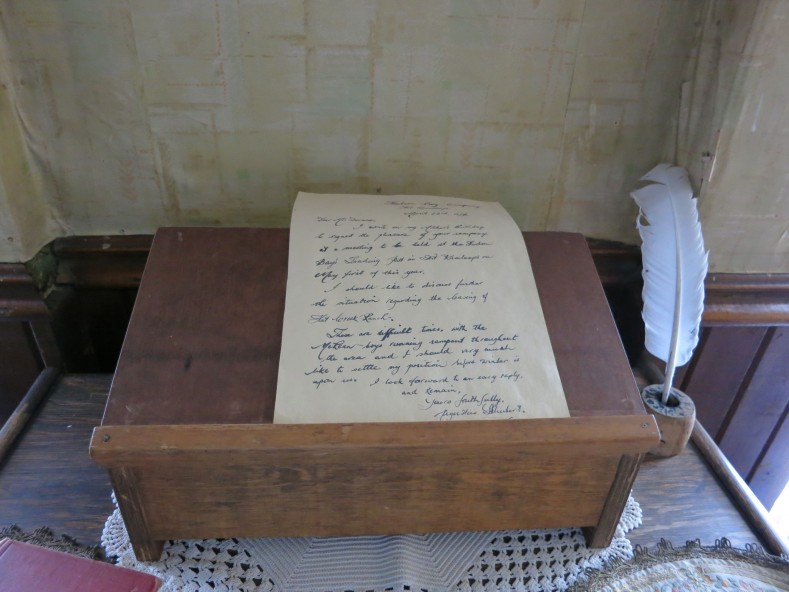 Hudson Bay Company
April 22nd,
Dear Mr.
I write on my Mother's
to request the pleasure of your company
at a meeting to be held at the Hudson
Bay Trading Post in Old Kamloops on
May first of this year.
I should like to discuss further
the situation regarding the leasing of
Creek Ranch.
These are difficult times, with the
McLean-boys running rampant throughout
the area and I should very much
like to settle my position before winter is
upon us. I look forward to an early reply.
and Remain,
Yours faithfully,
Augustus Schubert.